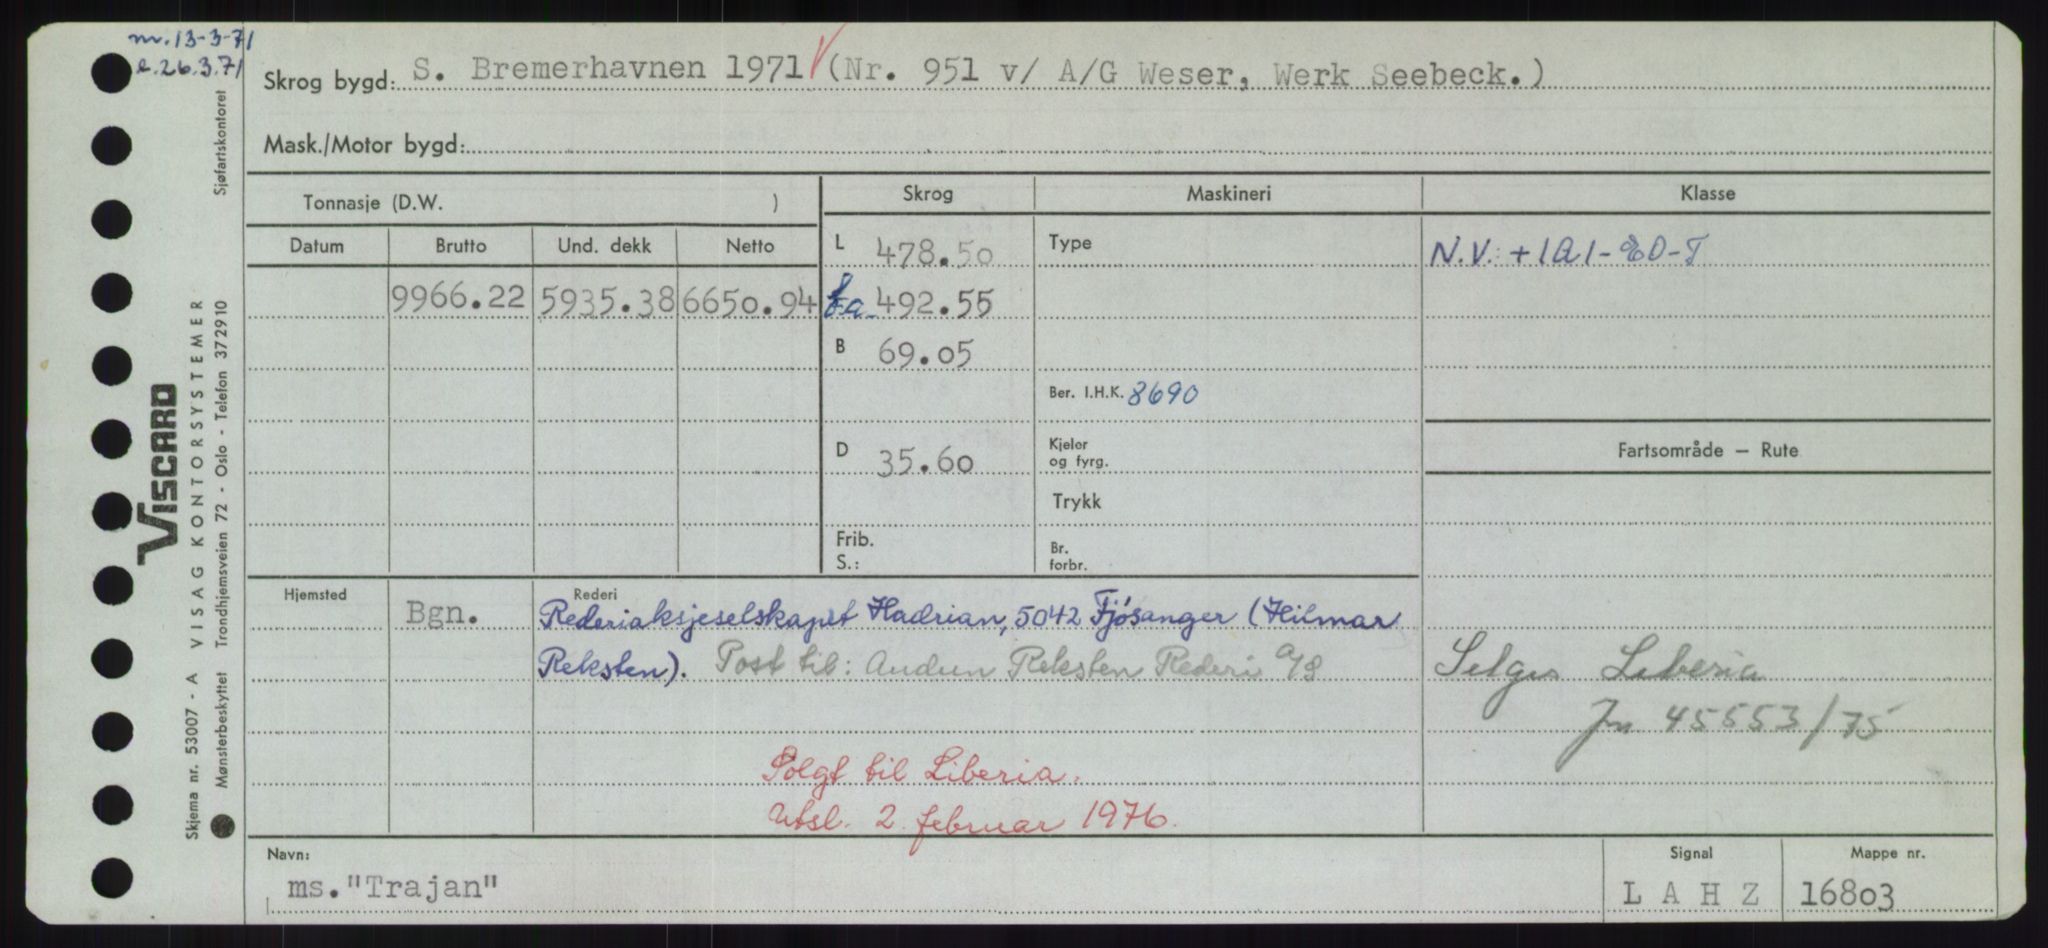 m. 13-3-71
e. 26.3.71
Skrog bygd: S. Bremerhavnen 1971 √ (Nr. 951 v/ A/G Weser, Werk Seebeck.)
Mask./Motor bygd:
Tonnasje (D.W. )
Skrog
Maskineri
Klasse
Datum Brutto Und. dekk Netto
L 478.50
Type
N.V. +1A1-EO-T
9966.22 5935.38 6650.94
fa. 492.55
B 69.05
Ber. I.H.K. 8690
D 35.60
Kjeler
og fyrg.
Fartsområde – Rute
Trykk
Frib.
S.:
Br.
forbr.
Hjemsted
Bgn.
Rederi
Rederiaksjeselskapet Hadrian, 5042 Fjøsanger (Hilmar
Reksten). Post til: Audun Reksten Rederi A/S
Selges Liberia
Jn 45553/75
Solgt til Liberia.
Utsl. 2. februar 1976.
Navn:
ms. "Trajan"
Signal
L A H Z
Mappe nr.
16803
Skjema nr. 53007 - A VISAG KONTORSYSTEMER Sjøfartskontoret
Mønsterbeskyttet Trondhjemsveien 72 - Oslo - Telefon 372910
VISCARD